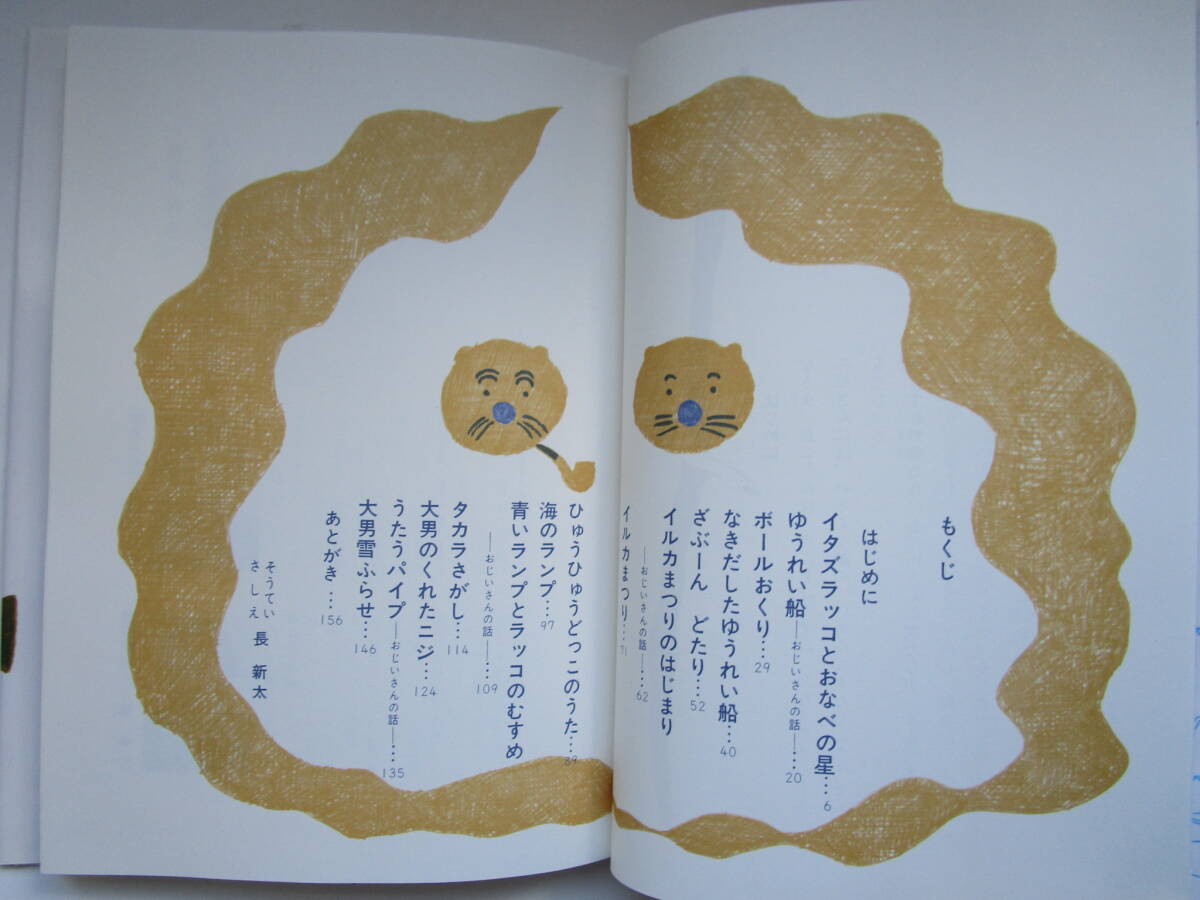 もくじ
はじめに
イタズラッコとおなべの星…6
ゆうれい船――おじいさんの話――…20
ボールおくり…29
なきだしたゆうれい船…40
ざぶーん どたり…52
イルカまつりのはじまり
――おじいさんの話――…62
イルカまつり…71
ひゅうひゅうどっこのうた…89
海のランプ…97
青いランプとラッコのむすめ
――おじいさんの話――…109
タカラさがし…114
大男のくれたニジ…124
うたうパイプ――おじいさんの話――…135
大男雪ふらせ…146
あとがき…156
そうてい
さしえ 長 新太